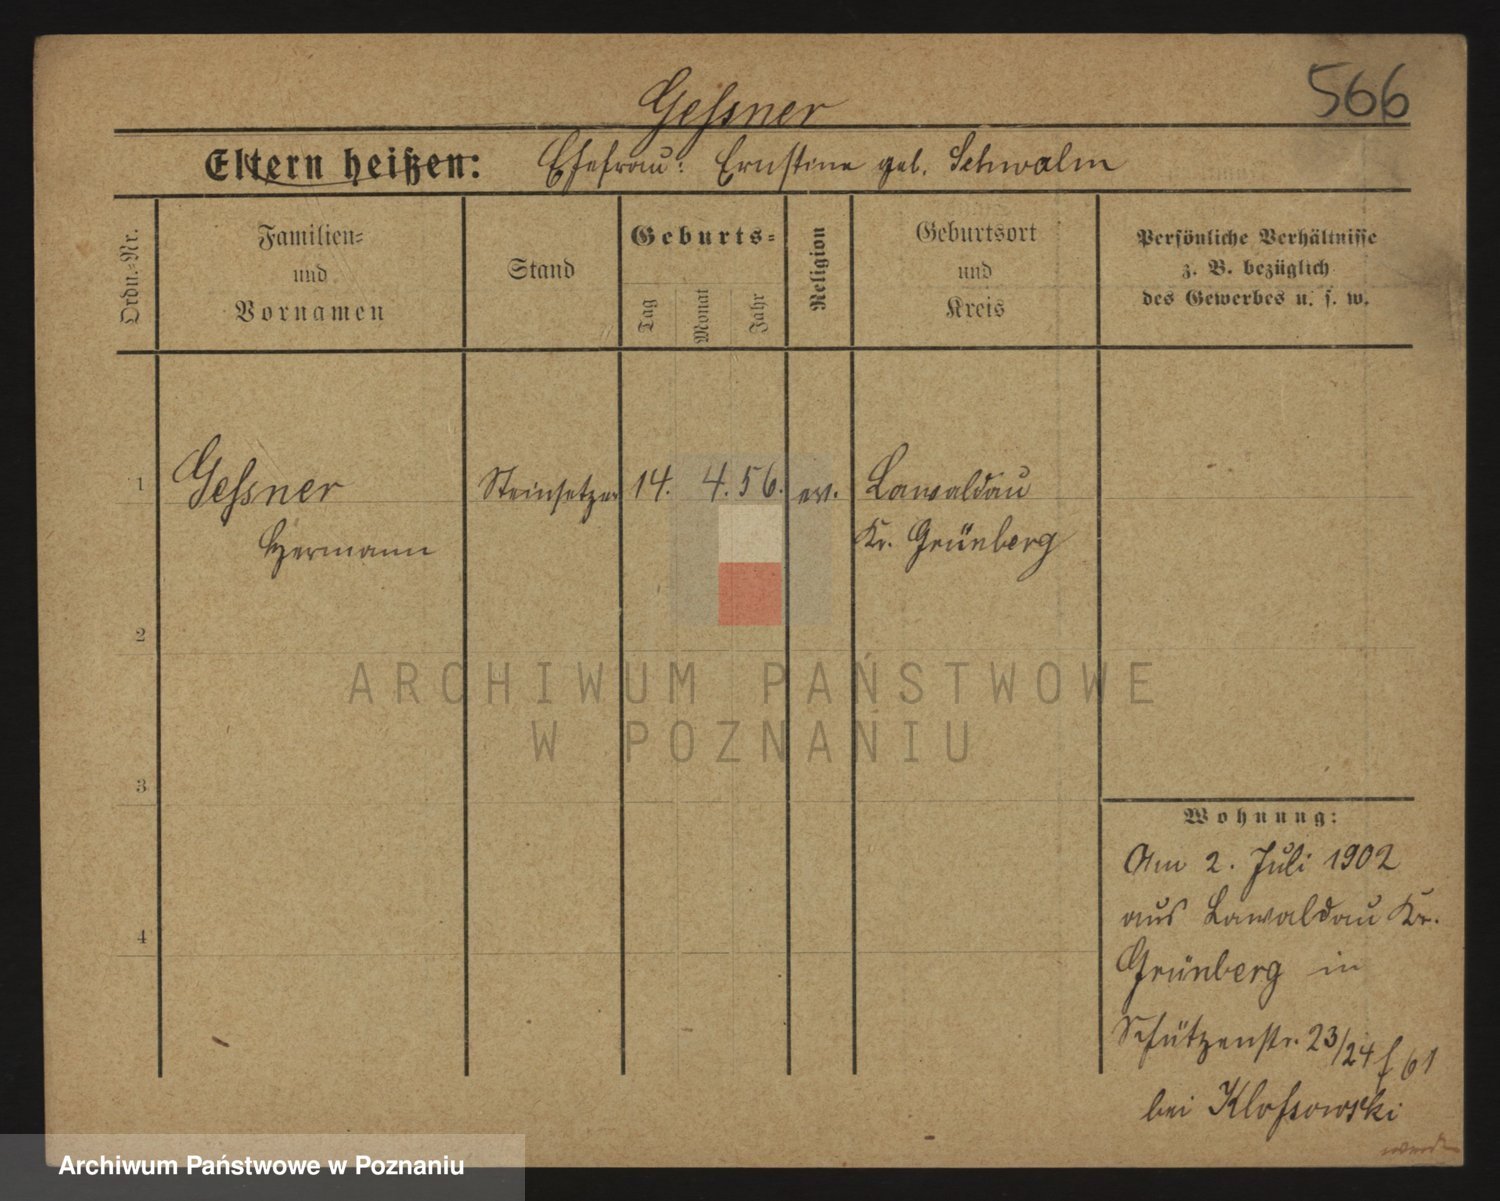 566
Gessner
Eltern heißen: Ehefrau: Ernstine geb. Schwalm
Ordn.-Nr.
Familien-
und
Vornamen
Stand
Geburts-
Tag
Monat
Jahr
Religion
Geburtsort
und
Kreis
Persönliche Verhältnisse
z. B. bezüglich
des Gewerbes u. s. w.
1 Gessner Steinsetzer 14. 4. 56. ev. Lawaldau
Hermann Kr. Grünberg
2
ARCHIWUM PAŃSTWOWE
W POZNANIU
3
4
Wohnung:
Am 2. Juli 1902
aus Lawaldau Kr.
Grünberg in
Schützenstr. 23/24 f 61
bei Klossowski
Archiwum Państwowe w Poznaniu